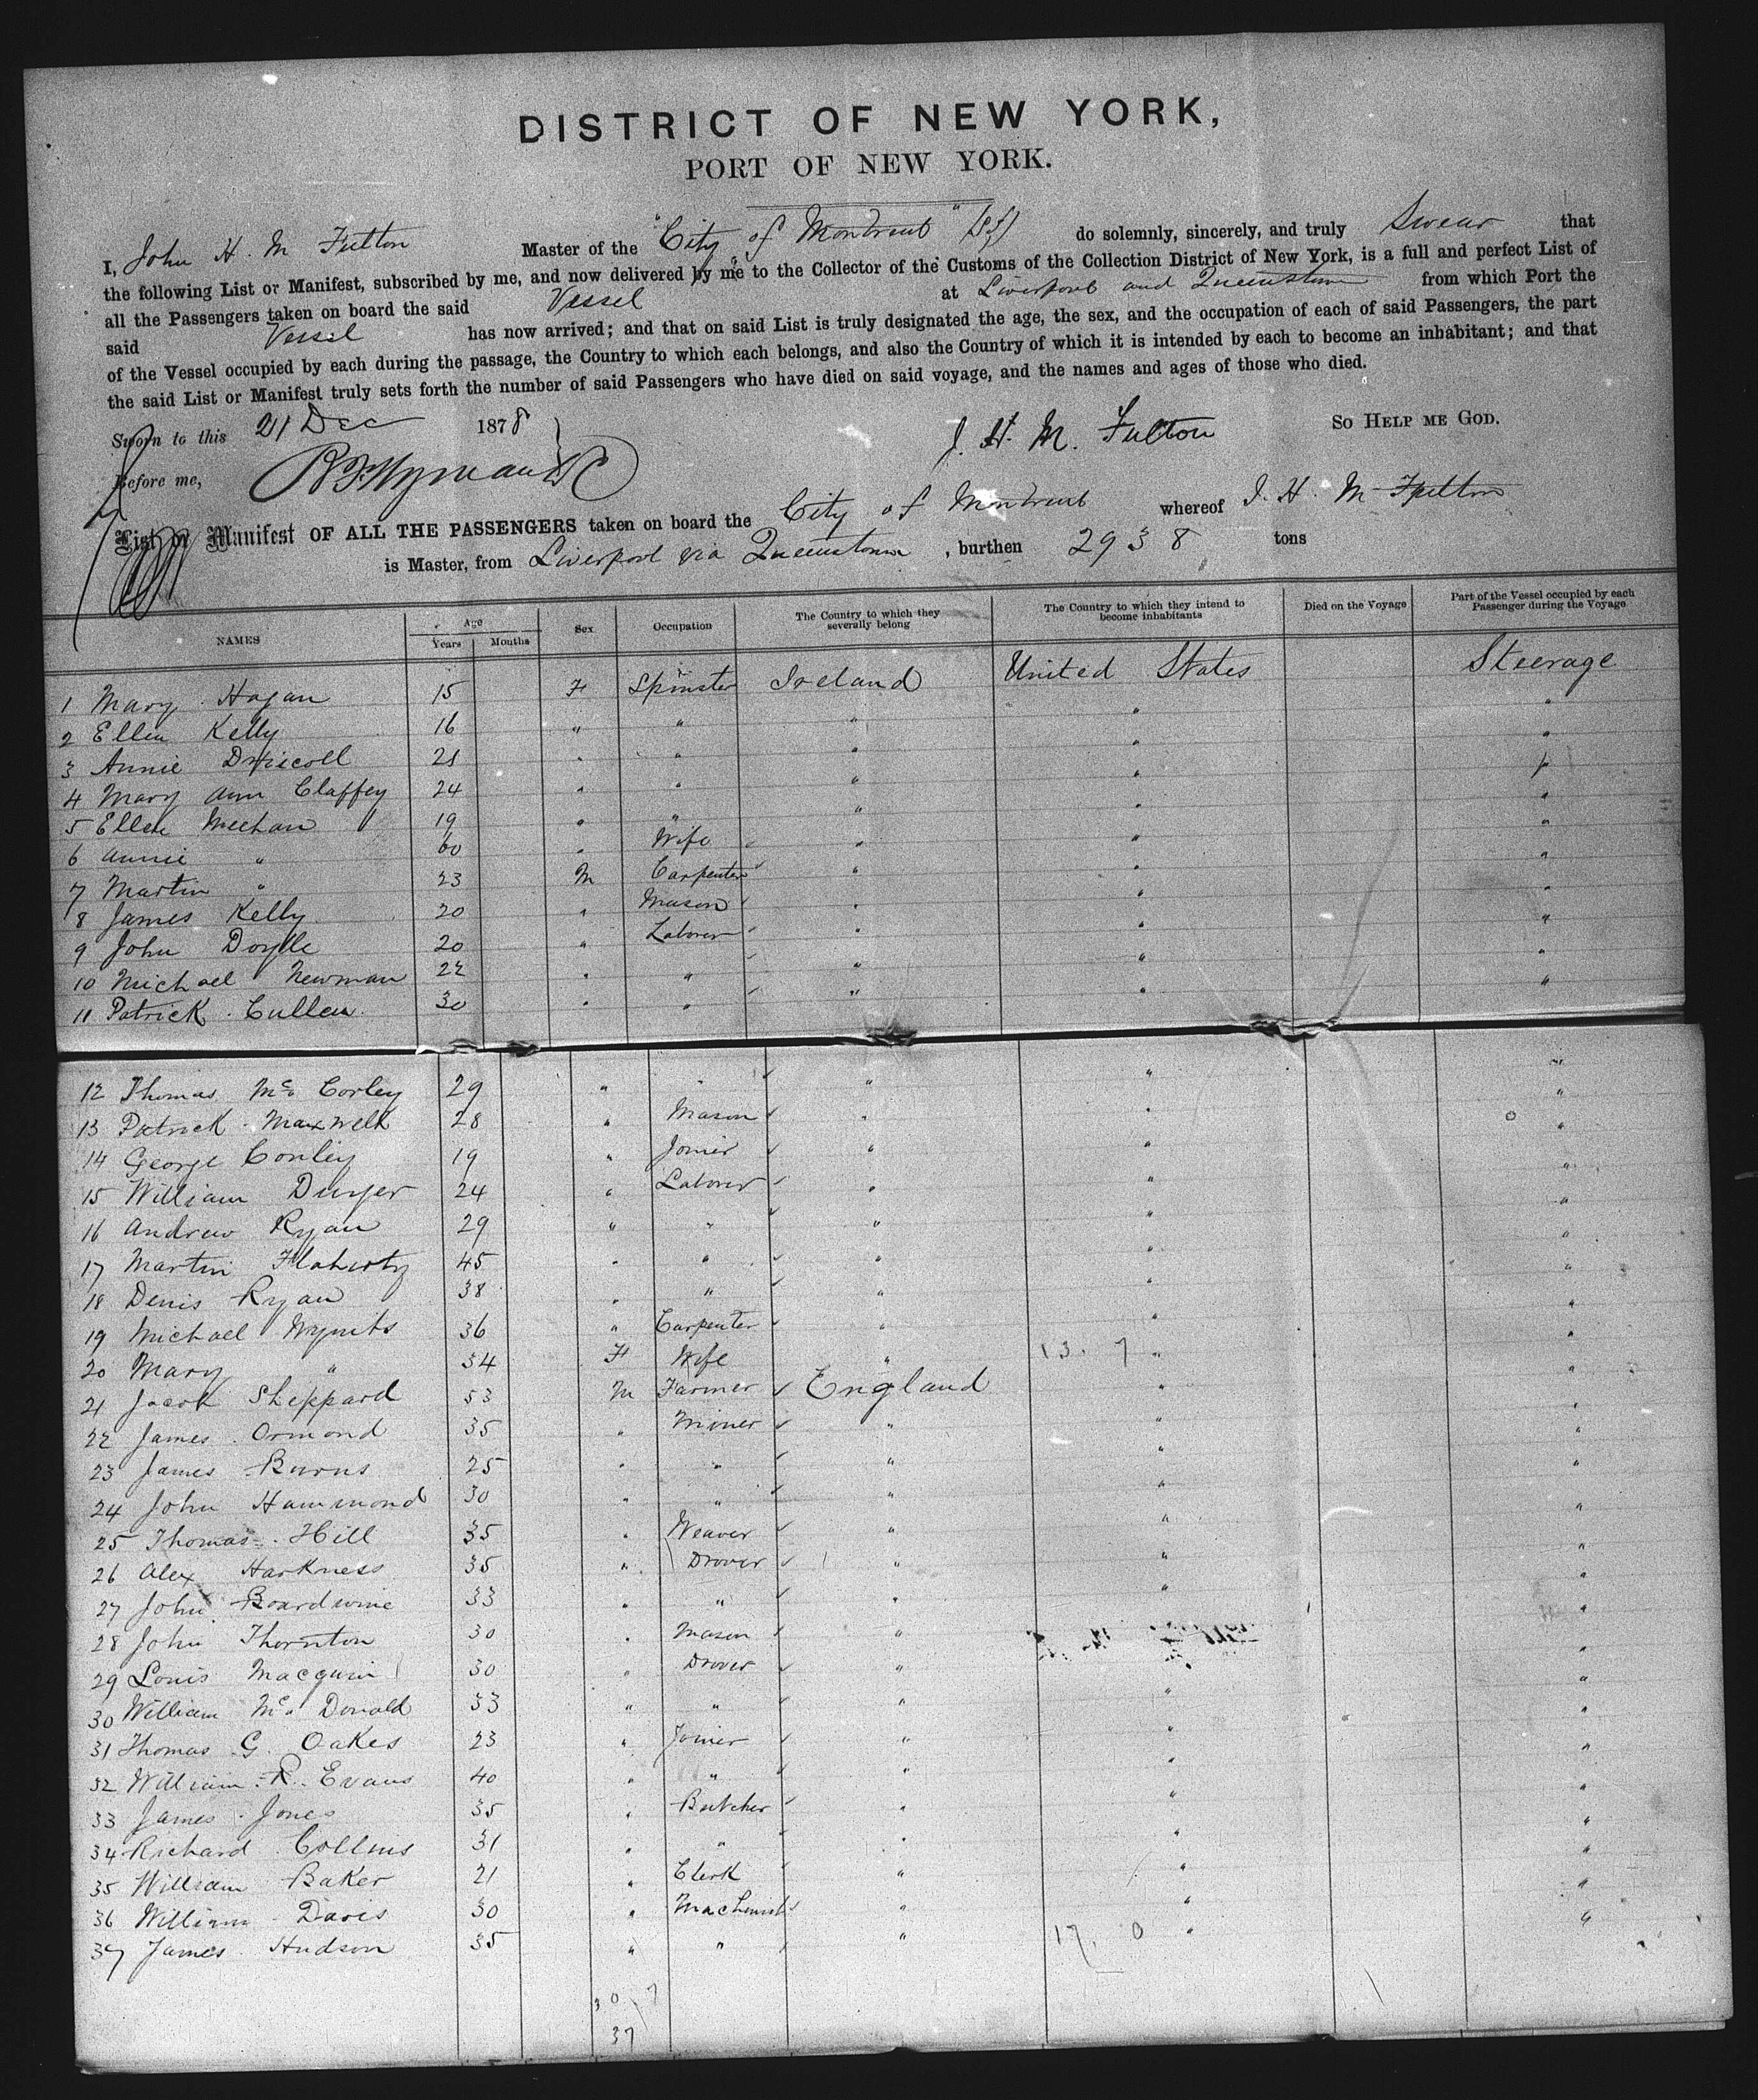 DISTRICT OF NEW YORK,
PORT OF NEW YORK.
I, John H. M Fulton Master of the "City of Montreal" (SS) do solemnly, sincerely, and truly Swear that
the following List or Manifest, subscribed by me, and now delivered by me to the Collector of the Customs of the Collection District of New York, is a full and perfect List of
all the Passengers taken on board the said Vessel at Liverpool and Queenstown from which Port the
said Vessel has now arrived; and that on said List is truly designated the age, the sex, and the occupation of each of said Passengers, the part
of the Vessel occupied by each during the passage, the Country to which each belongs, and also the Country of which it is intended by each to become an inhabitant; and that
the said List or Manifest truly sets forth the number of said Passengers who have died on said voyage, and the names and ages of those who died.
Sworn to this 21 Dec 1878 J. H. M. Fulton SO HELP ME GOD.
Before me,
List or Manifest OF ALL THE PASSENGERS taken on board the City of Montreal whereof J. H. M Fulton
is Master, from Liverpool via Queenstown, burthen 2938 tons
NAMES Age Years Months Sex Occupation The Country to which they severally belong The Country to which they intend to become inhabitants Died on the Voyage Part of the Vessel occupied by each Passenger during the Voyage
1 Mary Hagan 15 F Spinster Ireland United States Steerage
2 Ellen Kelly 16 " " " " "
3 Annie Driscoll 21 " " " " "
4 Mary Ann Claffey 24 " " " " "
5 Ellen Meehan 19 " " " " "
6 Annie " 60 " Wife " " "
7 Martin " 23 M Carpenter " " "
8 James Kelly 20 " Mason " " "
9 John Doyle 20 " Laborer " " "
10 Michael Newman 22 " " " " "
11 Patrick Cullen 30 " " " " "
12 Thomas Mc Corley 29 " " " " "
13 Patrick Maxwell 28 " Mason " " "
14 George Conley 19 " Joiner " " "
15 William Dwyer 24 " Laborer " " "
16 Andrew Ryan 29 " " " " "
17 Martin Flaherty 45 " " " " "
18 Denis Ryan 38 " " " " "
19 Michael 36 " Carpenter " " "
20 Mary " 34 F Wife " 13. 7 " "
21 Jacob Sheppard 53 M Farmer England " "
22 James Ormond 35 " Miner " " "
23 James Burns 25 " " " " "
24 John Hammond 30 " " " " "
25 Thomas Hill 35 " Weaver " " "
26 Alex Harkness 35 " Drover " " "
27 John Boardwine 33 " " " " "
28 John Thornton 30 " Mason " " "
29 Louis Macguin 30 " Drover " " "
30 William Mc Donald 33 " " " " "
31 Thomas G. Oakes 23 " Joiner " " "
32 William R. Evans 40 " " " " "
33 James Jones 35 " Butcher " " "
34 Richard Collins 31 " " " " "
35 William Baker 21 " Clerk " " "
36 William Davis 30 " Machinist " " "
37 James Hudson 35 " " " 17. 0 " "
30 7
37